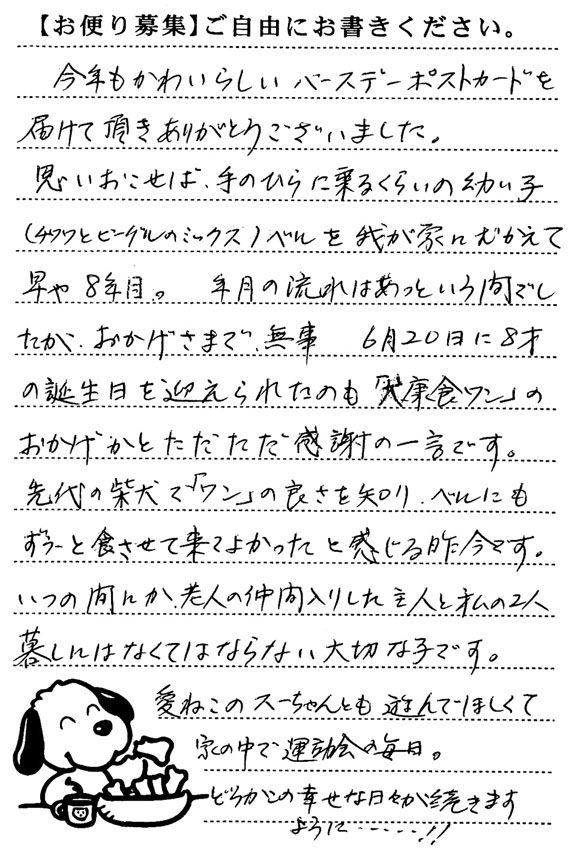 【お便り募集】ご自由にお書きください。
今年もかわいらしい バースデーポストカードを
届けて頂きありがとうございました。
思いおこせば、手のひらに乗るくらいの幼い子
(チワワとビーグルのミックス)ベルを我が家にむかえて
早や8年目。 年月の流れはあっという間でし
たが、おかげさまで、無事 6月20日に8才
の誕生日を迎えられたのも「犬康食ワン」の
おかげかとただただ感謝の一言です。
先代の柴犬で「ワン」の良さを知り、ベルにも
ずぅーと食させて来てよかったと感じる昨今です。
いつの間にか、老人の仲間入りした主人と私の2人
暮しにはなくてはならない大切な子です。
愛ねこのスーちゃんとも遊んでほしくて
家の中で運動会の毎日。
どうかこの幸せな日々が続きます
ように・・・・・!!